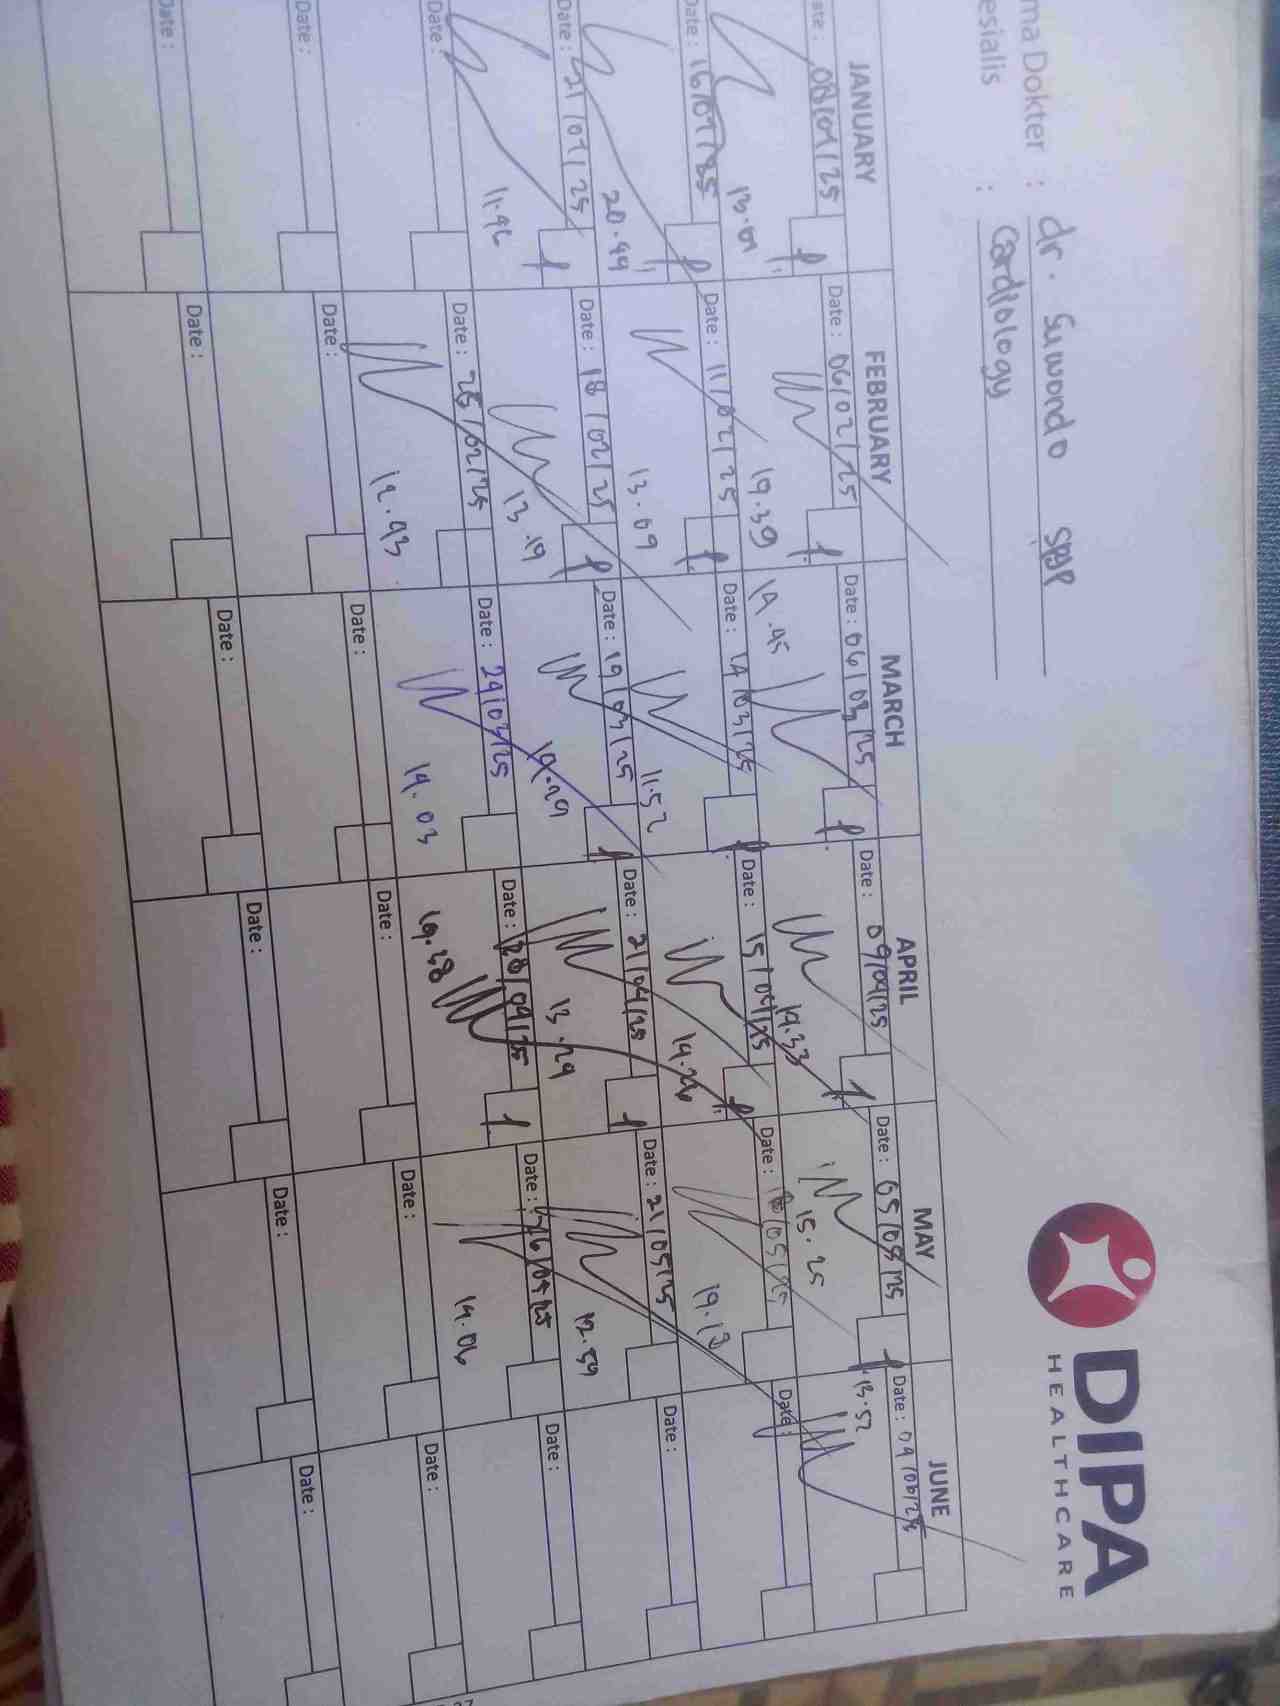 DIPA
HEALTHCARE
ma Dokter : dr. Suwondo SPBP
esialis : Cardiology
JANUARY FEBRUARY MARCH APRIL MAY JUNE
ate : 08/01/25 Date : 06/02/25 Date : 06/03/25 Date : 09/04/25 Date : 05/05/25 Date : 04/06/25
13.01 19.39 14.45 14.33 15.25 13.52
Date : 16/01/25 Date : 11/02/25 Date : 14/03/25 Date : 15/04/25 Date : Date :
20.44 13.09 11.52 14.26 19.18
Date : 21/01/25 Date : 18/02/25 Date : 19/03/25 Date : 21/04/25 Date : 21/05/25 Date :
11.46 13.19 14.29 13.24 12.54
Date : Date : 25/02/25 Date : 24/03/25 Date : 28/04/25 Date : 26/05/25 Date :
12.43 14.03 19.38 14.06
Date : Date : Date : Date : Date : Date :
Date : Date : Date : Date : Date : Date :